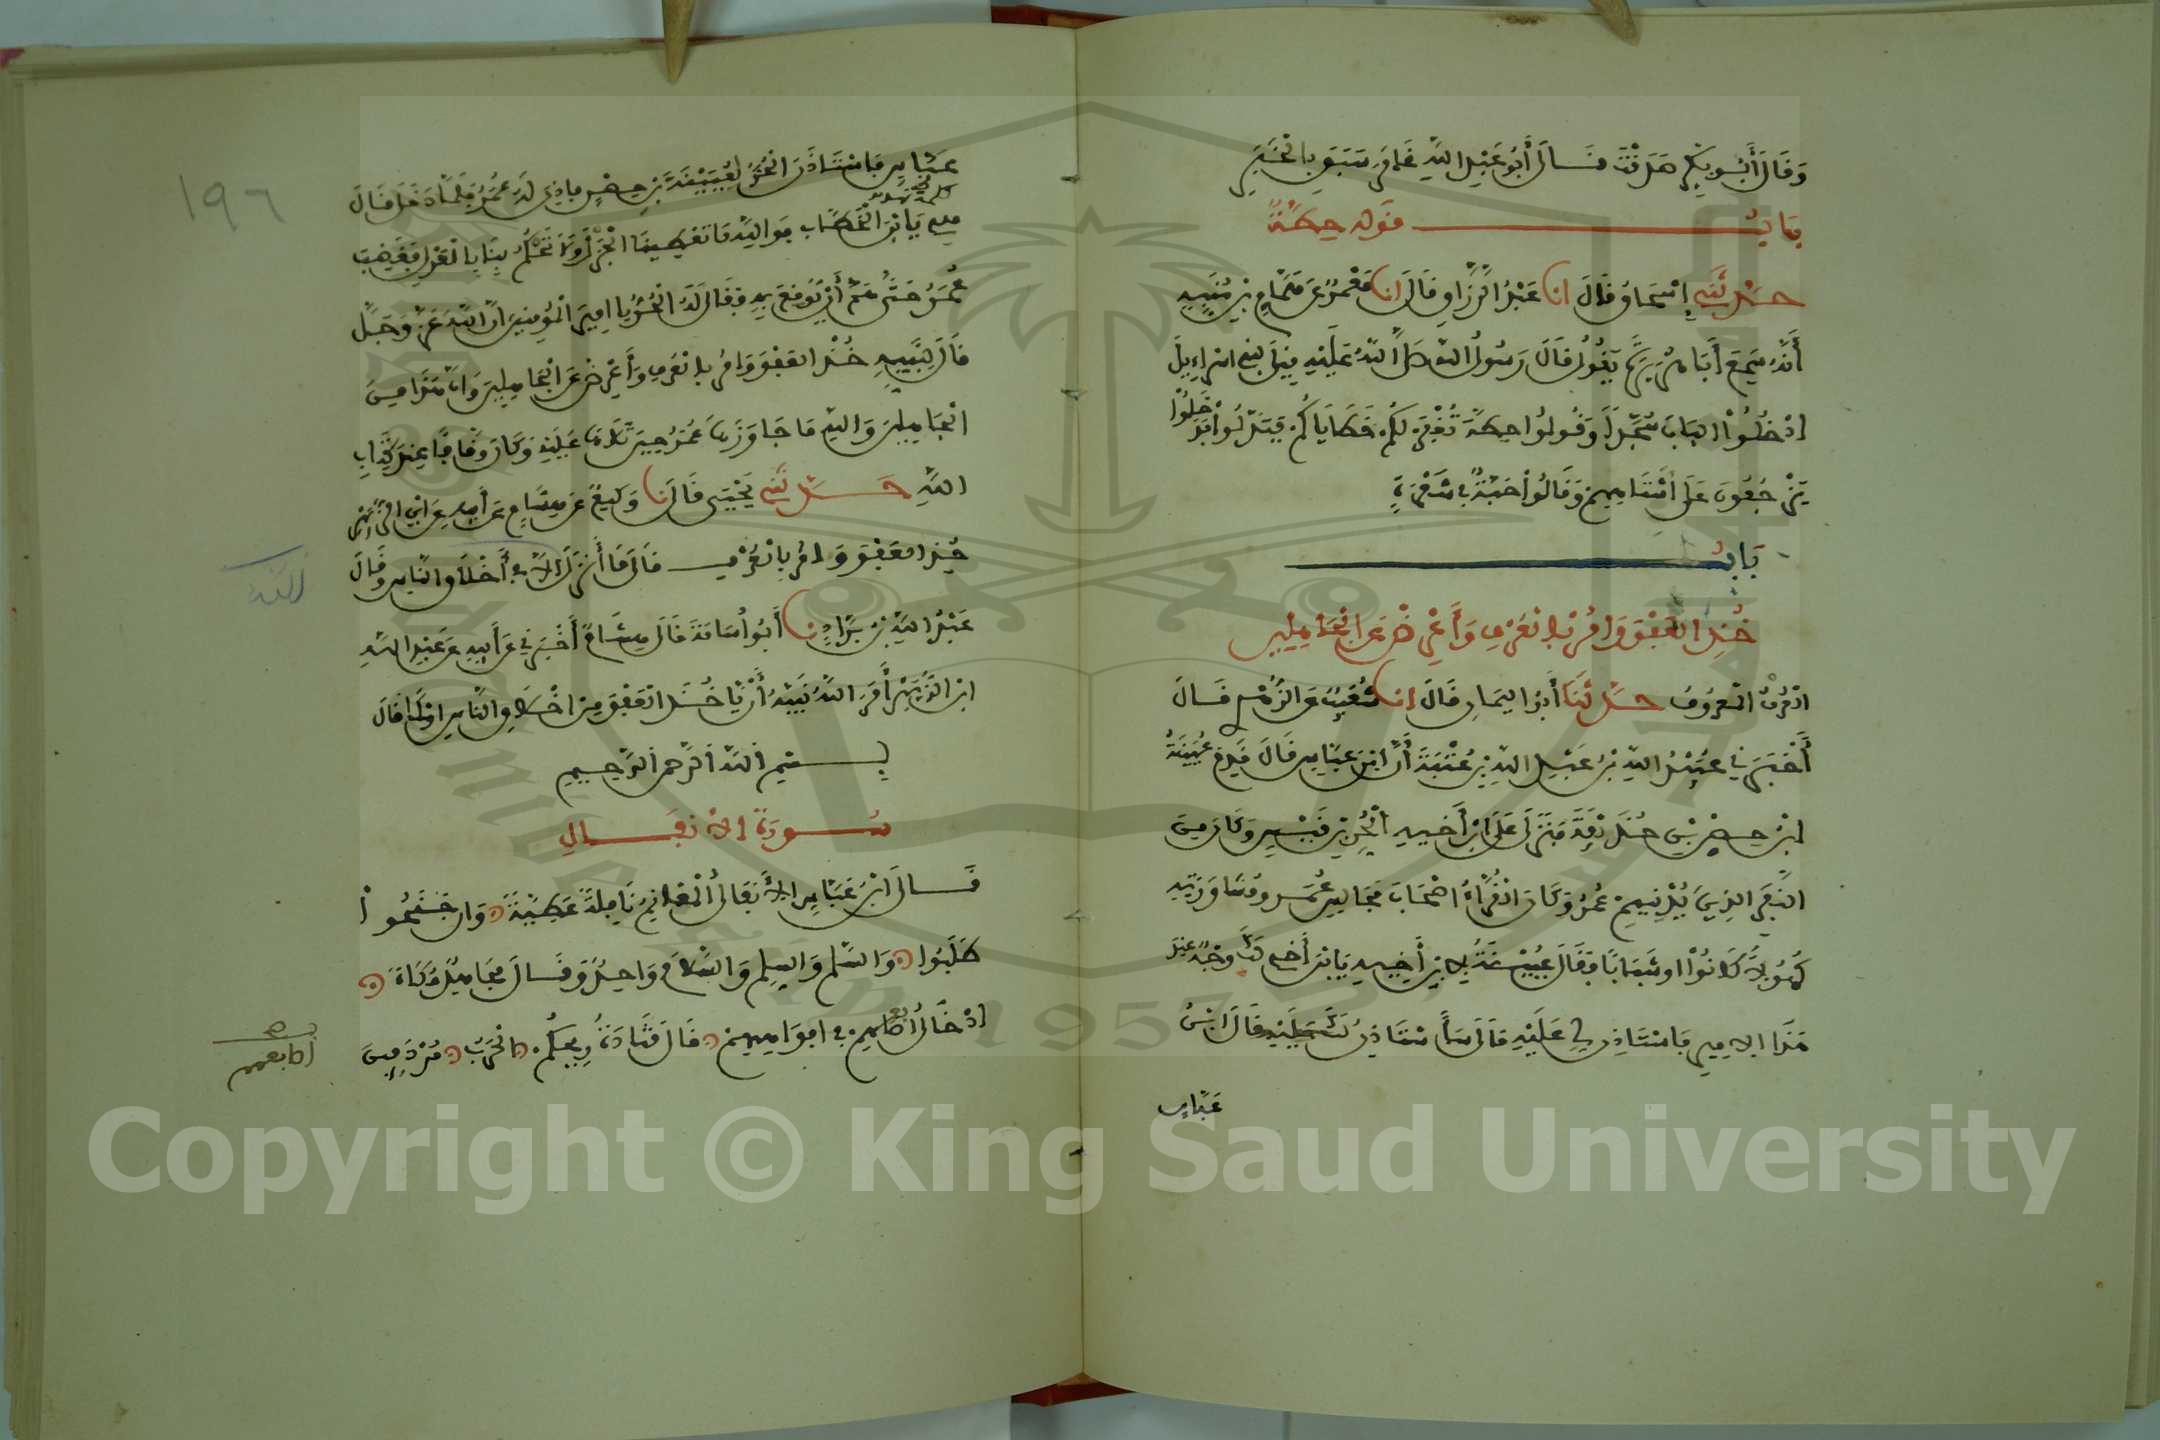 وَقَالَ أَبُو بَكْرٍ صَدَقْتَ قَالَ أَبُو عَبْدِ اللَّهِ غَامَرَ سَبَقَ بِالْخَيْرِ
بَابُ قوله حِطَّةٌ
حَدَّثَنِي إِسْحَاقُ قَالَ انا عَبْدُ الرَّزَّاقِ قَالَ انا مَعْمَرٌ عَن هَمَّامِ بْنِ مُنَبِّهٍ
أَنَّهُ سَمِعَ أَبَا هُرَيْرَةَ يَقُولُ قَالَ رَسُولُ اللَّهِ صَلَّى اللَّهُ عَلَيْهِ قِيلَ لِبَنِي إِسْرَاءِيلَ
ادْخُلُوا الْبَابَ سُجَّدًا وَقُولُوا حِطَّةٌ تُغْفَرْ لَكُمْ خَطَايَاكُمْ فَبَدَّلُوا فَدَخَلُوا
يَزْحَفُونَ عَلَى أَسْتَاهِهِمْ وَقَالُوا حَبَّةٌ فِي شَعَرَةٍ
بَابُ
خُذِ الْعَفْوَ وَامُرْ بِالْعُرْفِ وَأَعْرِضْ عَنِ الْجَاهِلِينَ
الْعُرْفُ الْمَعْرُوفُ حَدَّثَنَا أَبُو الْيَمَانِ قَالَ انا شُعَيْبٌ عَنِ الزُّهْرِيِّ قَالَ
أَخْبَرَنِي عُبَيْدُ اللَّهِ بْنُ عَبْدِ اللَّهِ بْنِ عُتْبَةَ أَنَّ ابْنَ عَبَّاسٍ قَالَ قَدِمَ عُيَيْنَةُ
ابْنُ حِصْنِ بْنِ حُذَيْفَةَ فَنَزَلَ عَلَى ابْنِ أَخِيهِ الْحُرِّ بْنِ قَيْسٍ وَكَانَ مِنَ
النَّفَرِ الَّذِينَ يُدْنِيهِمْ عُمَرُ وَكَانَ الْقُرَّاءُ أَصْحَابَ مَجَالِسِ عُمَرَ وَمُشَاوَرَتِهِ
كُهُولًا كَانُوا أَوْ شَبَابًا فَقَالَ عُيَيْنَةُ لِابْنِ أَخِيهِ يَا بْنَ أَخِي لَكَ وَجْهٌ عِنْدَ
هَذَا الْأَمِيرِ فَاسْتَاذِنْ لِي عَلَيْهِ قَالَ سَأَسْتَاذِنُ لَكَ عَلَيْهِ قَالَ ابْنُ
عَبَّاسٍ
عَبَّاسٍ فَاسْتَاذَنَ الْحُرُّ لِعُيَيْنَةَ بْنِ حِصْنٍ فَأَذِنَ لَهُ عُمَرُ فَلَمَّا دَخَلَ قَالَ
هِي يَا بْنَ الْخَطَّابِ فَوَاللَّهِ مَا تُعْطِينَا الْجَزْلَ وَلَا تَحْكُمُ بَيْنَنَا بِالْعَدْلِ فَغَضِبَ
عُمَرُ حَتَّى هَمَّ أَنْ يُوقِعَ بِهِ فَقَالَ لَهُ الْحُرُّ يَا أَمِيرَ الْمُومِنِينَ إِنَّ اللَّهَ عَزَّ وَجَلَّ
قَالَ لِنَبِيِّهِ خُذِ الْعَفْوَ وَامُرْ بِالْعُرْفِ وَأَعْرِضْ عَنِ الْجَاهِلِينَ وَإِنَّ هَذَا مِنَ
الْجَاهِلِينَ وَاللَّهِ مَا جَاوَزَهَا عُمَرُ حِينَ تَلَاهَا عَلَيْهِ وَكَانَ وَقَّافًا عِنْدَ كِتَابِ
اللَّهِ حَدَّثَنِي يَحْيَى قَالَ نا وَكِيعٌ عَنْ هِشَامٍ عَنْ أَبِيهِ عَنِ ابْنِ الزُّبَيْرِ
خُذِ الْعَفْوَ وَامُرْ بِالْعُرْفِ قَالَ مَا أَنْزَلَ اللَّهُ إِلَّا فِي أَخْلَاقِ النَّاسِ وَقَالَ
عَبْدُ اللَّهِ بْنُ بَرَّادٍ نا أَبُو أُسَامَةَ قَالَ هِشَامٌ أَخْبَرَنِي عَنْ أَبِيهِ عَنْ عَبْدِ اللَّهِ
ابْنِ الزُّبَيْرِ أَمَرَ اللَّهُ نَبِيَّهُ أَنْ يَاخُذَ الْعَفْوَ مِنْ أَخْلَاقِ النَّاسِ أَوْ كَمَا قَالَ
بِسْمِ اللَّهِ الرَّحْمَنِ الرَّحِيمِ
سُورَةُ الْأَنْفَالِ
قَالَ ابْنُ عَبَّاسٍ الْأَنْفَالُ الْمَغَانِمُ نَافِلَةٌ عَطِيَّةٌ وَإِنْ جَنَحُوا
طَلَبُوا وَالسَّلْمُ وَالسِّلْمُ وَالسَّلَامُ وَاحِدٌ وَقَالَ مُجَاهِدٌ مُكَاءً
إِدْخَالُ أَصَابِعِهِمْ فِي أَفْوَاهِهِمْ قَالَ قَتَادَةُ رِيحُكُمْ الْحَرْبُ مُرْدَفِينَ
١٩٦
أصابعهم
Copyright © King Saud University
1957